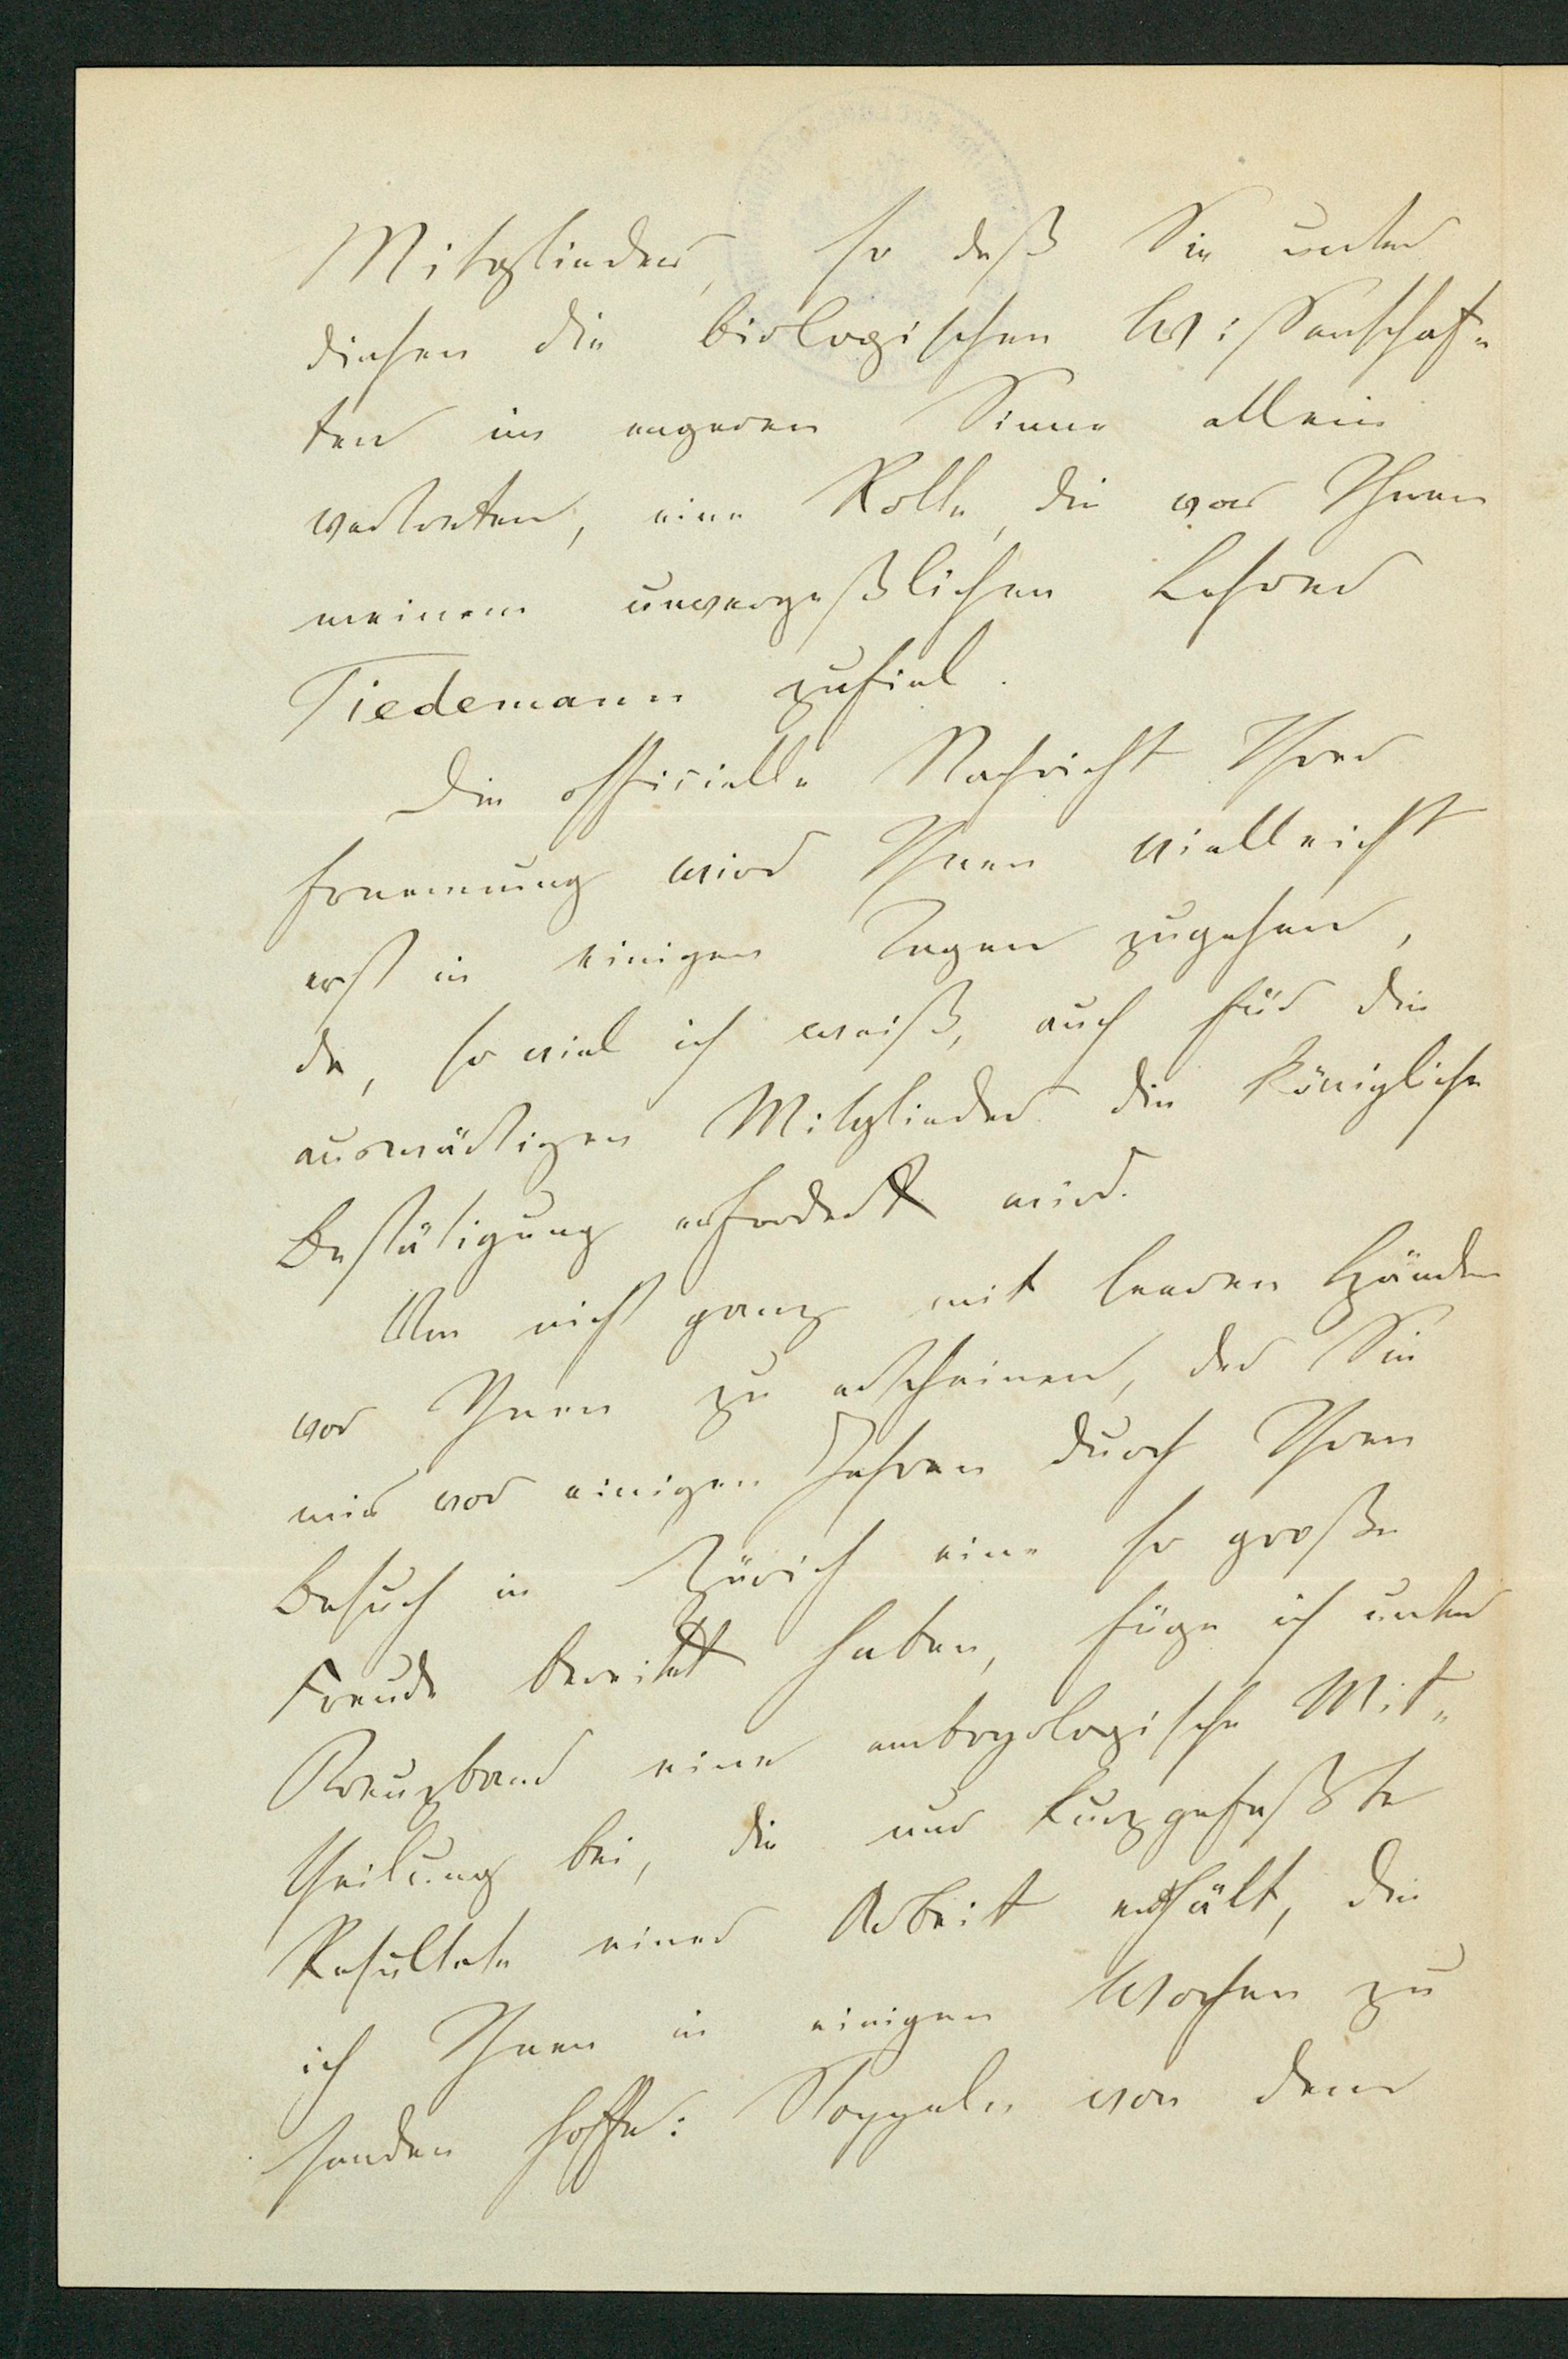 Mitglieder, so daß Sie unter
diesen die biologischen Wissenschaf-
ten im engeren Sinne allein
vertreten, eine Rolle, die vor Ihnen
meinem unvergeßlichen Lehrer
Tiedemann zufiel.
Die officielle Nachricht Ihrer
Ernennung wird Ihnen vielleicht
erst in einigen Tagen zugehen,
da, so viel ich weiß, auch für die
auswärtigen Mitglieder die Königliche
Bestätigung erfordert wird.
Um nicht ganz mit leeren Händen
vor Ihnen zu erscheinen, der Sie
mir vor einigen Jahren durch Ihren
Besuch in Zürich eine so große
Freude bereitet haben, füge ich unter
Kreuzband eine embryologische Mit-
theilung bei, die nur kurzgefaßte
Resultate einer Arbeit enthält, die
ich Ihnen in einigen Wochen zu
senden hoffe: Stoppeln von dem